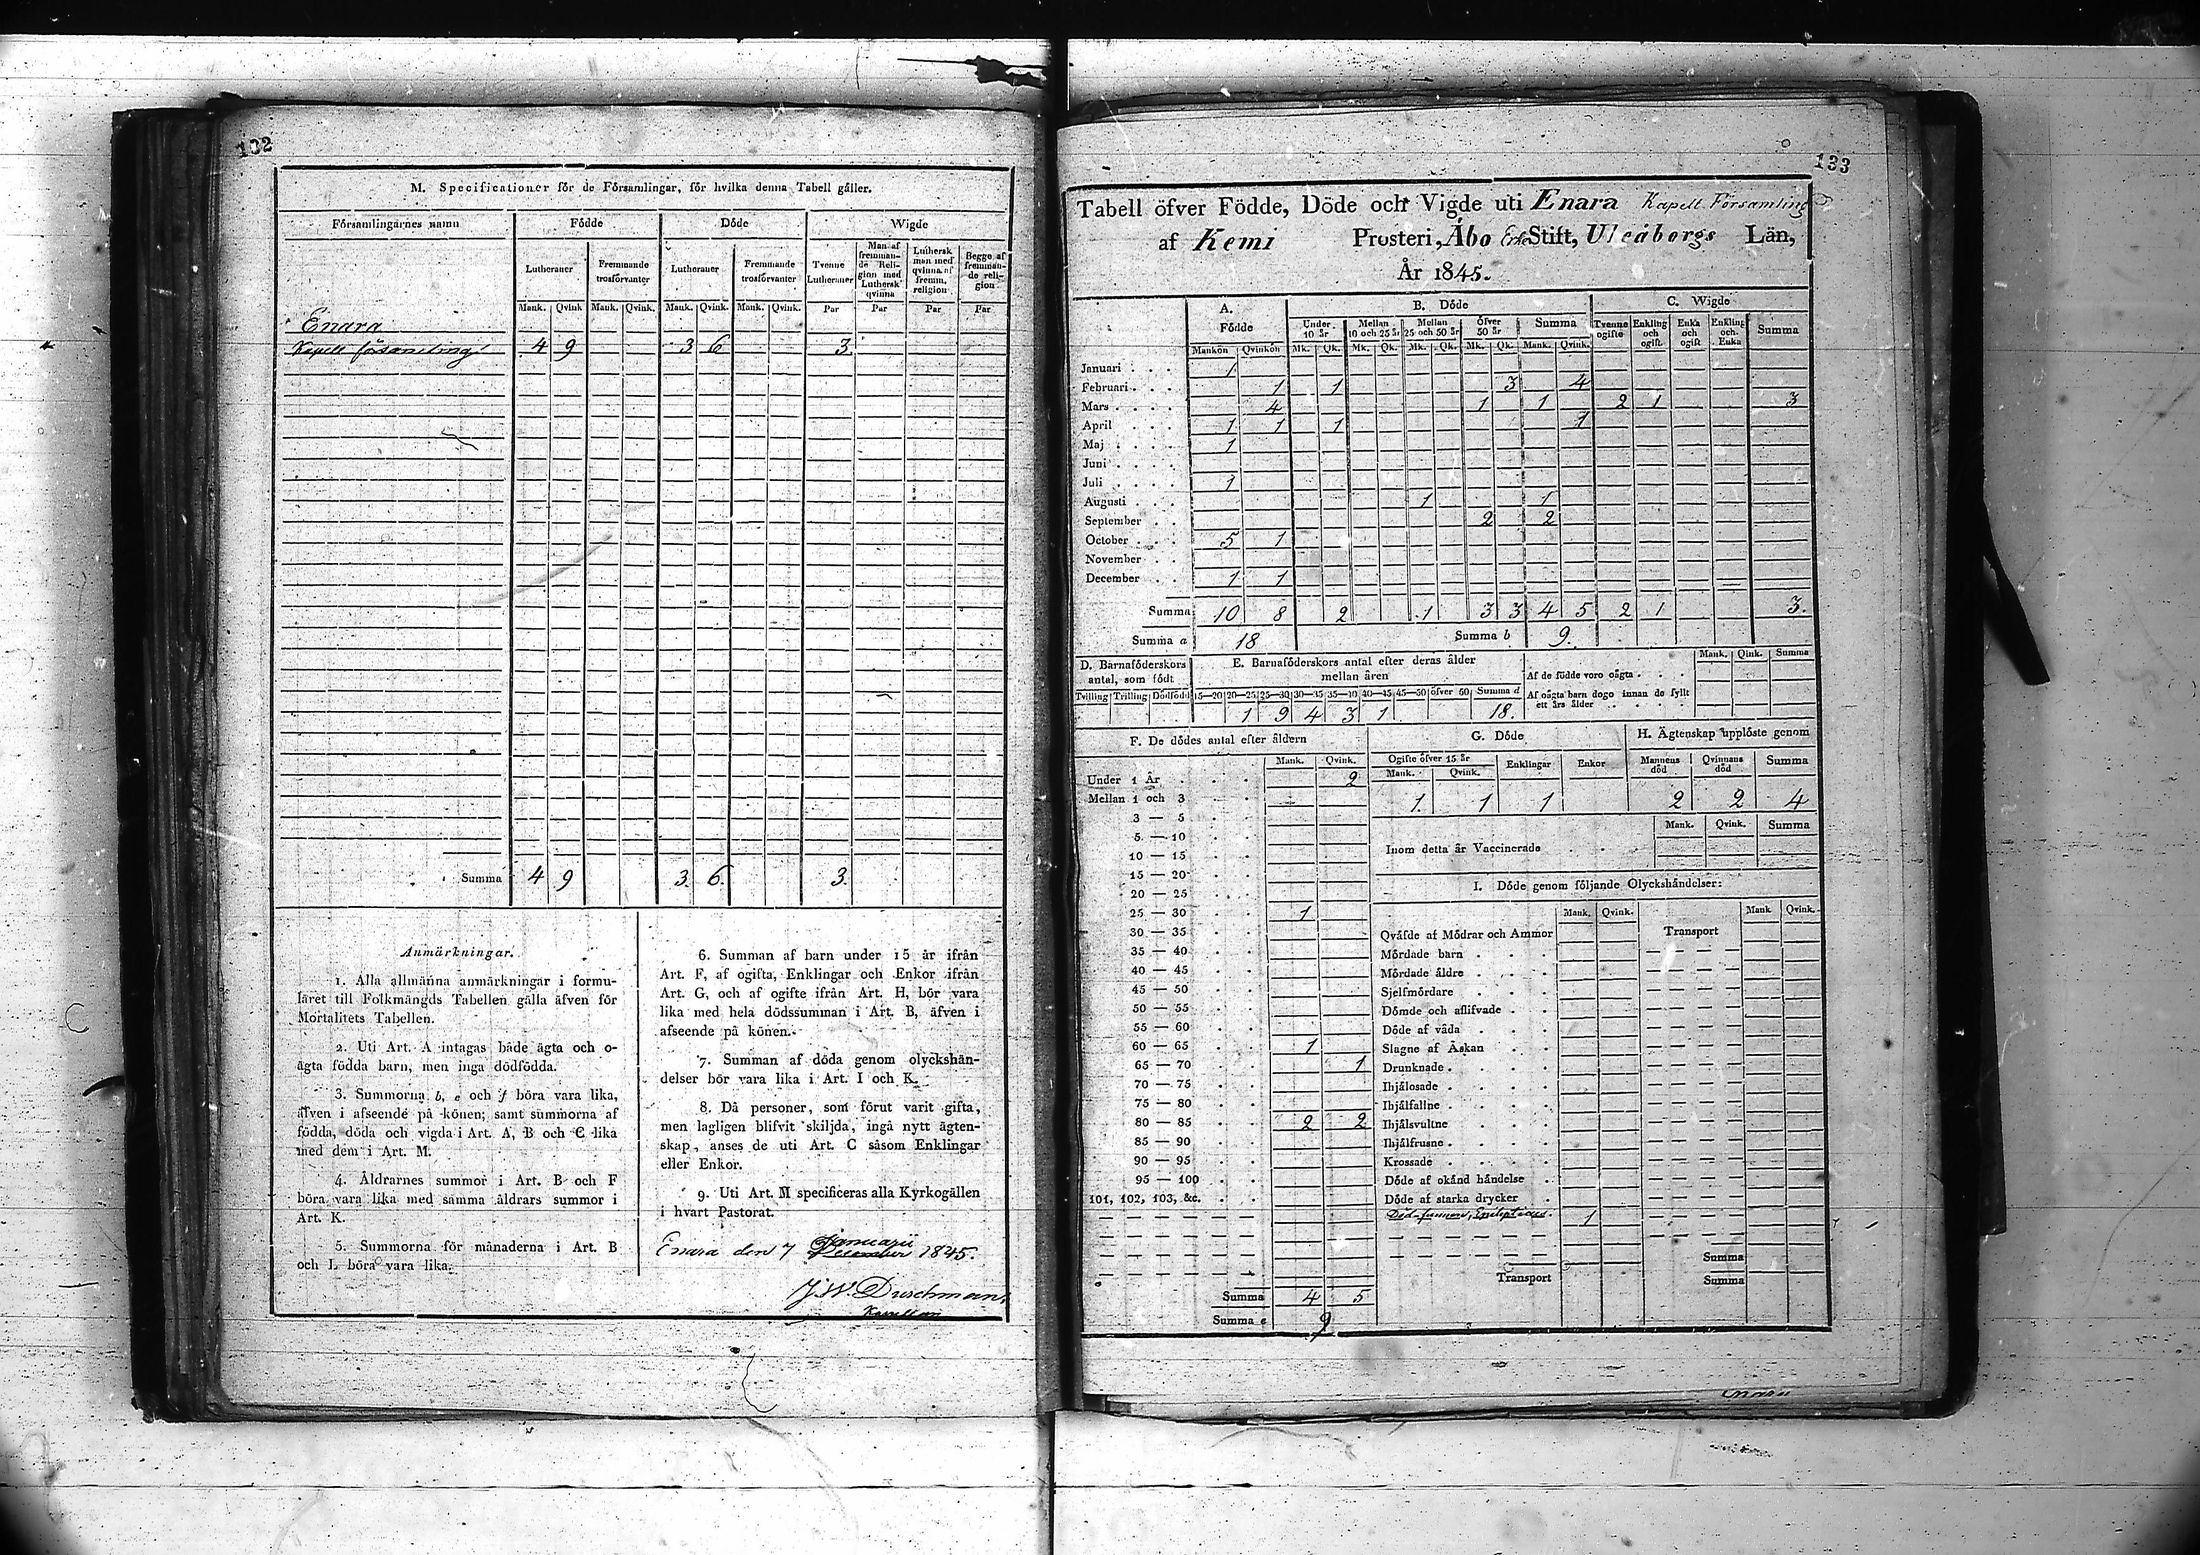 132
M. Specificationer för de Församlingar, för hvilka denna Tabell gäller.
Församlingarnes namn Födde Döde Wigde
Lutheraner Fremmande trosförvanter Lutheraner Fremmande trosförvanter Tvenne Lutheraner Man af fremmande Religion med Luthersk qvinna Luthersk man med qvinna af fremm. religion Begge af fremmande religion
Mank. Qvink Mank. Qvink. Mank. Qvink. Mank. Qvink. Par Par Par Par
Enara
Kapell församling 4 9 3 6 3
Summa 4 9 3 6. 3.
Anmärkningar.
1. Alla allmänna anmärkningar i formu-
läret till Folkmängds Tabellen gälla äfven för
Mortalitets Tabellen.
2. Uti Art. A intagas både ägta och o-
ägta födda barn, men inga dödfödda.
3. Summorna b, e och f böra vara lika,
äfven i afseende på könen; samt summorna af
födda, döda och vigda i Art. A, B och C lika
med dem i Art. M.
4. Åldrarnes summor i Art. B och F
böra vara lika med samma åldrars summor i
Art. K.
5. Summorna för månaderna i Art. B
och L böra vara lika.
6. Summan af barn under 15 år ifrån
Art. F, af ogifta, Enklingar och Enkor ifrån
Art. G, och af ogifte ifrån Art. H, bör vara
lika med hela dödssumman i Art. B, äfven i
afseende på könen.
7. Summan af döda genom olyckshän-
delser bör vara lika i Art. I och K.
8. Då personer, som förut varit gifta,
men lagligen blifvit skiljda, ingå nytt ägten-
skap, anses de uti Art. C såsom Enklingar
eller Enkor.
9. Uti Art. M specificeras alla Kyrkogällen
i hvart Pastorat.
Enara den 7 Januarii 1845.
J. W. Durchman,
Kapellan
133
Tabell öfver Födde, Döde och Vigde uti Enara Kapell Församling
af Kemi Prosteri, Åbo Erke Stift, Uleåborgs Län,
År 1845.
A. Födde B. Döde C. Wigde
Under 10 år Mellan 10 och 25 år Mellan 25 och 50 år Öfver 50 år Summa Tvenne ogifte Enkling och ogift Enka och ogift Enkling och Enka Summa
Mankön Qvinkön Mk. Qk. Mk. Qk. Mk. Qk. Mk. Qk. Mank. Qvink.
Januari 1
Februari 1 1 3 4
Mars 4 1 1 2 1 3
April 1 1 1 1
Maj 1
Juni
Juli 1
Augusti 1 1
September 2 2
October 5 1
November
December 1 1
Summa 10 8 2 1 3 3 4 5 2 1 3.
Summa a 18 Summa b 9.
D. Barnaföderskors antal, som födt
Tvilling Trilling Dödfödd
E. Barnaföderskors antal efter deras ålder mellan åren
15—20 20—25 25—30 30—35 35—40 40—45 45—50 öfver 50 Summa d
1 9 4 3 1 18.
Mank. Qink. Summa
Af de födde voro oägta
Af oägta barn dogo innan de fyllt ett års ålder
F. De dödes antal efter åldern
Mank. Qvink.
Under 1 År 2
Mellan 1 och 3
3 — 5
5 — 10
10 — 15
15 — 20
20 — 25
25 — 30 1
30 — 35
35 — 40
40 — 45
45 — 50
50 — 55
55 — 60
60 — 65 1
65 — 70 1
70 — 75
75 — 80
80 — 85 2 2
85 — 90
90 — 95
95 — 100
101, 102, 103, &c.
Summa 4 5
Summa e 9
G. Döde
Ogifte öfver 15 år Enklingar Enkor
Mank. Qvink.
1. 1 1
H. Ägtenskap upplöste genom
Mannens död Qvinnans död Summa
2 2 4
Mank. Qvink. Summa
Inom detta år Vaccinerade
I. Döde genom följande Olyckshändelser:
Mank. Qvink. Mank Qvink.
Qväfde af Mödrar och Ammor Transport
Mördade barn
Mördade äldre
Sjelfmördare
Dömde och aflifvade
Döde af våda
Slagne af Åskan
Drunknade
Ihjälosade
Ihjälfallne
Ihjälsvultne
Ihjälfrusne
Krossade
Döde af okänd händelse
Döde af starka drycker
1
Summa
Transport Summa
Enara